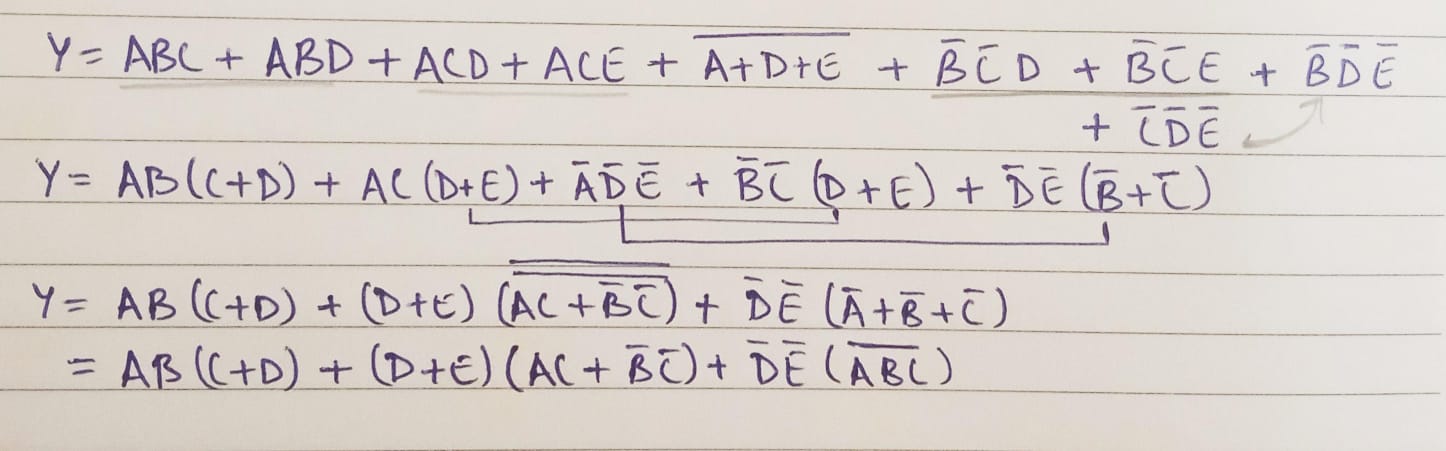 Y = ABC + ABD + ACD + ACE + \overline{A+D+E} + B̅C̅D + B̅C̅E + B̅D̅E̅
+ C̅D̅E̅
Y = AB(C+D) + AC(D+E) + A̅D̅E̅ + B̅C̅(D+E) + D̅E̅(B̅+C̅)
Y = AB(C+D) + (D+E)(\overline{\overline{AC+B̅C̅}}) + D̅E̅(A̅+B̅+C̅)
= AB(C+D) + (D+E)(AC+B̅C̅) + D̅E̅(\overline{ABC})